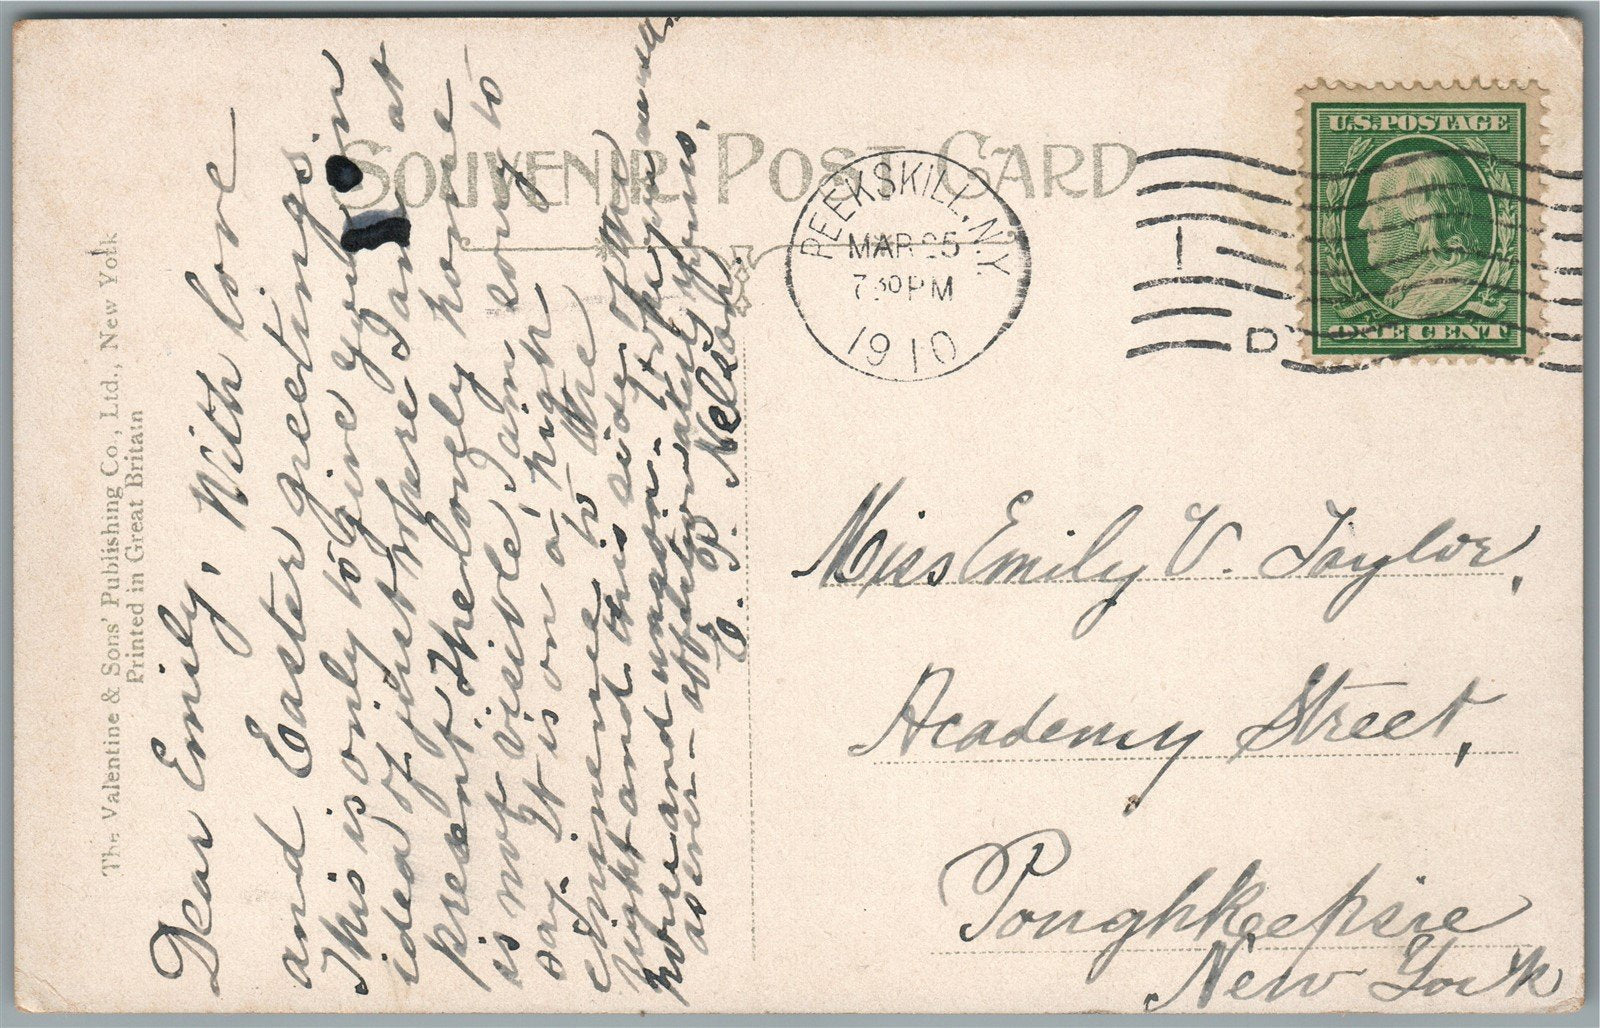 SOUVENIR POST CARD
The Valentine & Sons' Publishing Co., Ltd., New York
Printed in Great Britain
Dear Emily, With love
and Easter greetings.
This is only to give you an
idea of just where I am at
present. The lovely home
is not visible, I am sorry to
say. It is on a high
eminence to the
right and this side of the
horse and wagon.
as ever affectionately yours,
E. P. Nelson.
PEEKSKILL, N.Y.
MAR 25
7 30 PM
1910
1
D
U.S. POSTAGE
ONE CENT
Miss Emily V. Taylor,
Academy Street,
Poughkeepsie
New York